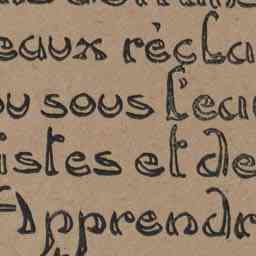 eaux récla
ou sous l'eau
istes et de
Apprendr